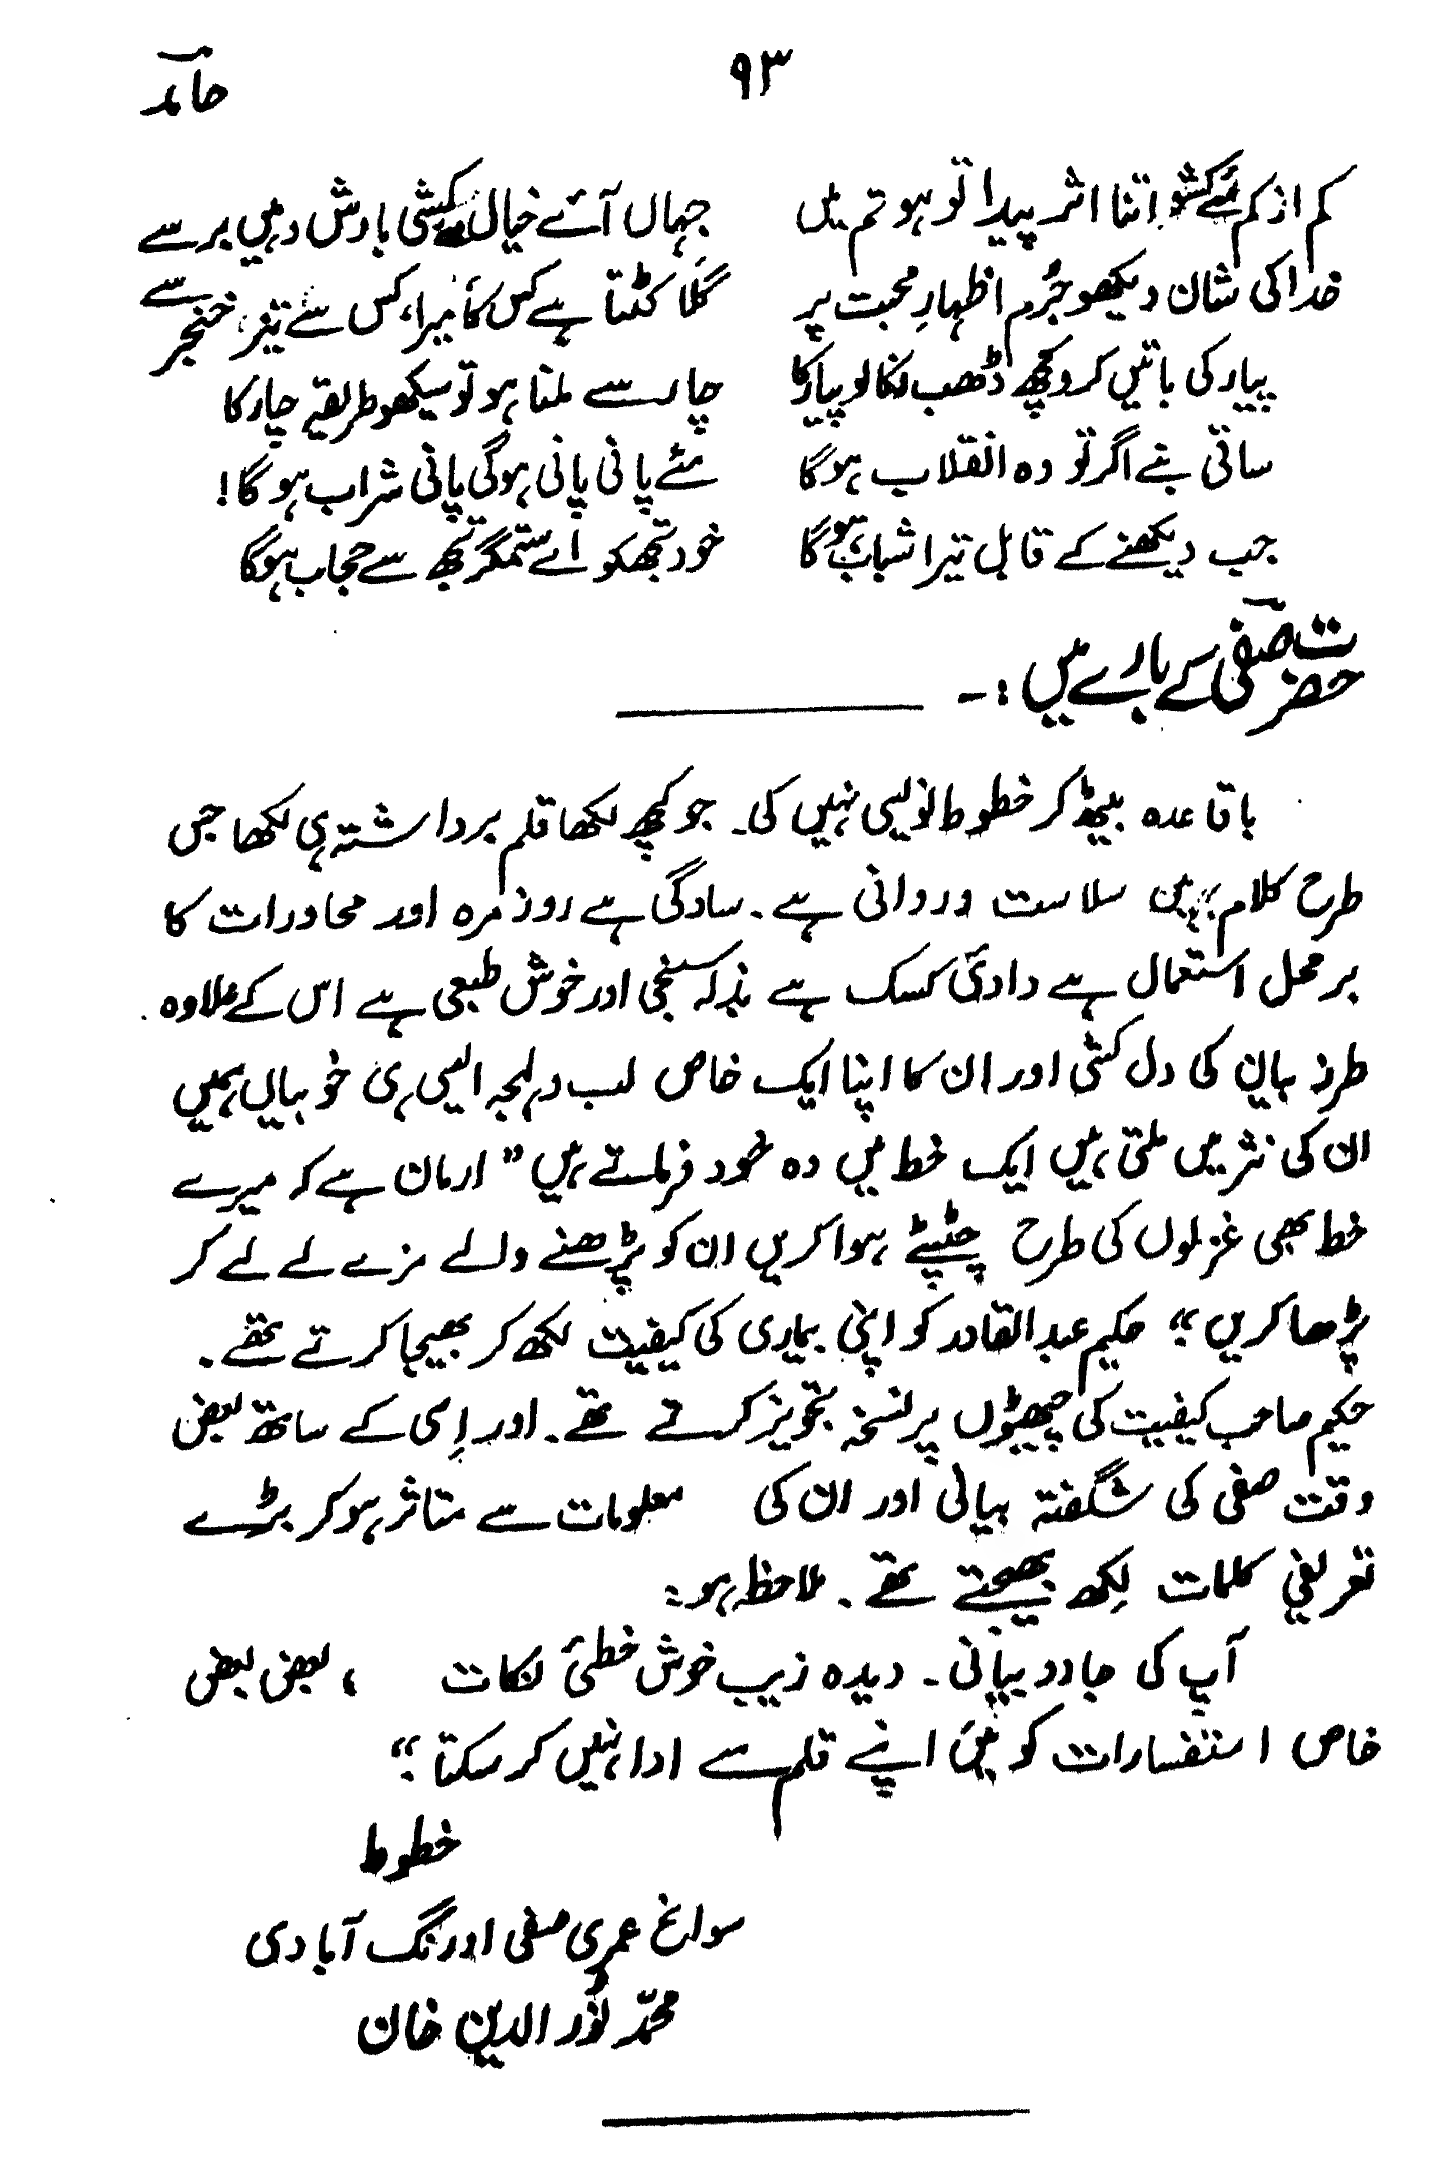 ۹۳
حامدؔ
کم از کم مئے کشو اتنا اثر پیدا تو ہو تم میں جہاں آئے خیال مے کشی بارش وہیں برسے
خدا کی شان دیکھو جُرم اظہارِ محبت پر گلا کٹتا ہے کس کا میرا، کس سے تیز، خنجر سے
پیار کی باتیں کرو کچھ ڈھب نکالو پیار کا چار سے ملنا ہو تو سیکھو طریقہ چار کا
ساقی بنے اگر تو وہ انقلاب ہوگا مئے پانی پانی ہوگی پانی شراب ہوگا!
جب دیکھنے کے قابل تیرا شباب ہوگا خود تجھ کو اے ستمگر تجھ سے حجاب ہوگا
حضرت صفیؔ کے بارے میں :۔
باقاعدہ بیٹھ کر خطوط نویسی نہیں کی۔ جو کچھ لکھا قلم برداشتہ ہی لکھا جس
طرح کلام میں سلاست و روانی ہے۔ سادگی ہے روز مرہ اور محاورات کا
بر محل استعمال ہے کسک ہے بذلہ سنجی اور خوش طبعی ہے اس کے علاوہ
طرز بیان کی دل کشی اور ان کا اپنا ایک خاص لب و لہجہ ایسی ہی خوبیاں ہمیں
ان کی نثر میں ملتی ہیں ایک خط میں وہ خود فرماتے ہیں " ارمان ہے کہ میرے
خط بھی غزلوں کی طرح چٹپٹے ہوا کریں ان کو پڑھنے والے مزے لے لے کر
پڑھا کریں " حکیم عبدالقادر کو اپنی بیماری کی کیفیت لکھ کر بھیجا کرتے تھے۔
حکیم صاحب کیفیت کی چھیوں پر نسخہ تجویز کرتے تھے۔ اور اِسی کے ساتھ بعض
وقت صفی کی شگفتہ بیانی اور ان کی معلومات سے متاثر ہو کر بڑے
تعریفی کلمات لِکھ بھیجتے تھے۔ ملاحظہ ہو:
آپ کی جادو بیانی۔ دیدہ زیب خوش خطیٔ نکات ، بعض بعض
خاص استفسارات کو میں اپنے قلم سے ادا نہیں کر سکتا "
خطوط
سوانح عمری صفی اورنگ آبادی
محمّد نُور الدین خان